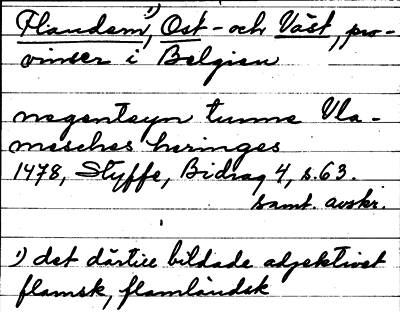 Flandern¹), Ost- och Väst, pro-
vinser i Belgien
negenteyn tunne Vla-
mesches heringes
1478, Styffe, Bidrag 4, s. 63.
samt. avskr.
¹) det därtill bildade adjektivet
flamsk, flamländsk